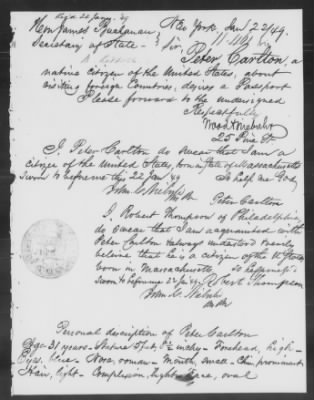 Rec'd 24 Jany. 49
New York, Jan 22/49.
Hon James Buchanan
Secretary of State - Sir
Peter Carlton, a
native citizen of the United States, about
visiting foreign Countries, desires a Passport
Please forward to the undersigned
Respectfully
25 Pine St
I, Peter Carlton do swear that I am a
citizen of the United States, born in State of Massachusetts
Sworn to before me this 22 Jany 49 So help me God
Peter Carlton
I, Robert Thompson of Philadelphia
do swear that I am acquainted with
Peter Carlton & always understood & verily
believe that he is a citizen of the U States
born in Massachusetts
Sworn to before me 22 Jany 49. Robert Thompson
Personal description of Peter Carlton
Age - 31 years - Stature 5 feet, inches - Forehead, high -
Eyes, blue - Nose, roman - Mouth, small - Chin, prominent
Hair, light - Complexion, light - Face, oval